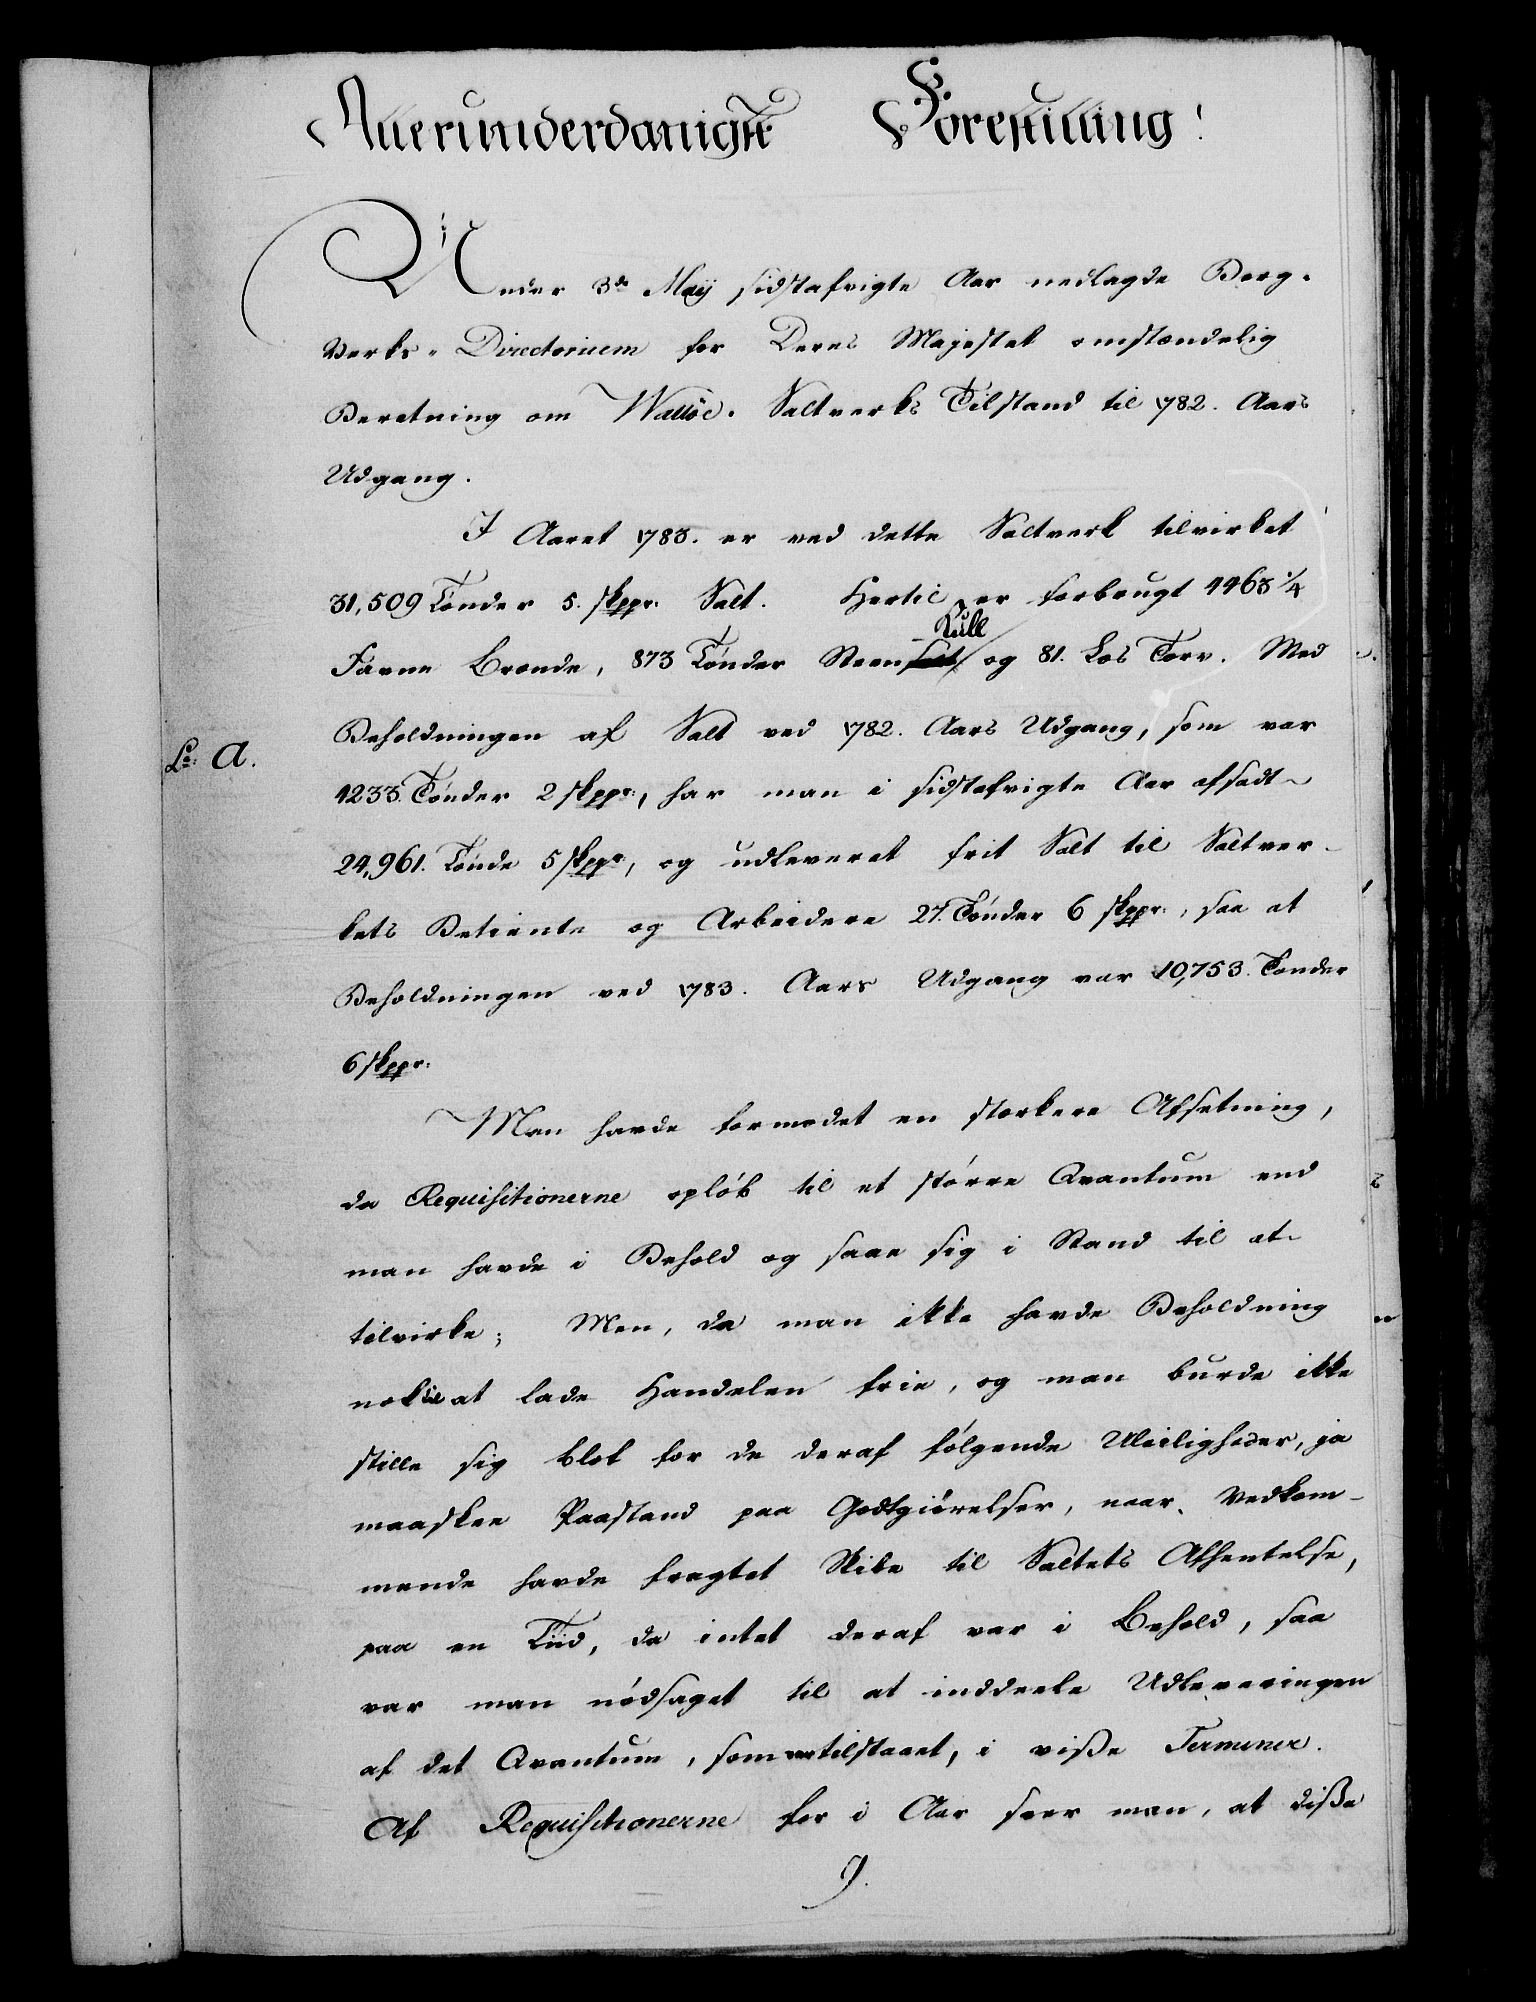 Allerunderdanigst Forestilling!
Under 3de Maij sidstafvigte Aar nedlagde Berg-
Verks-Directorium for Deres Majestet omstændelig
Beretning om Walløe Saltverks Tilstand til 1782. Aars
Udgang.
I Aaret 1783. er ved dette Saltverk tilvirket
31,509 Tønder 5. skppr. Salt. Hertil er forbrugt 4463 1/4
Kull
Favne Brænde, 873 Tønder Steen og 81. Læs Torv. Med
Beholdningen af Salt ved 1782. Aars Udgang, som var
La: A.
4233. Tønder 2 skppr:, har man i sidstafvigte Aar afsadt
24,961. Tønde 5 skppr, og udleveret frit Salt til Saltver-
kets Betiente og Arbeidere 27. Tønder 6 skppr:, saa at
Beholdningen ved 1783. Aars Udgang var 10,753. Tønder
6 skppr:
Man havde formodet en stærkere Afsetning,
da Requisitionerne opløb til et større Qvantum end
man havde i Behold og saae sig i Stand til at
tilvirke; Men, da man ikke havde Beholdning
nok til at lade Handelen frie, og man burde ikke
stille sig blot for de deraf følgende Uleiligheder, ja
maaskee Paastand paa Godtgiørelser, naar Vedkom-
mende havde fragtet Skibe til Saltets Afhentelse,
paa en Tiid, da intet deraf var i Behold, saa
var man nødsaget til at inddeele Udleveringen
af det Qvantum, som var tilstaaet, i viße Terminer.
Af Requisitionerne for i Aar seer man, at diße